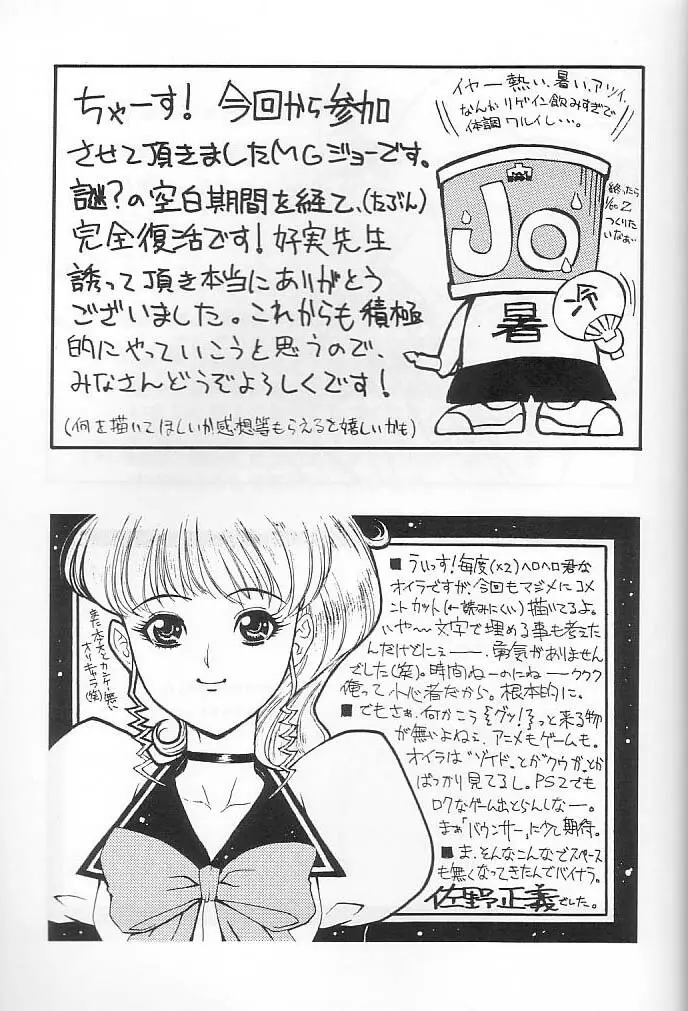 ちゃーす! 今回から参加
させて頂きましたMGジョーです。
謎?の空白期間を経て、(たぶん)
完全復活です! 好実先生
誘って頂き本当にありがとう
ございました。これからも積極
的にやっていこうと思うので、
みなさんどうぞよろしくです!
(何を描いてほしいか感想等もらえると嬉しいかも)
イヤー熱い、暑い、アツイ、
なんかリゲイン飲みすぎで
体調ワルイし…。
Jo
暑
終ったら
1/100 Z
つくりた
いなぁ…
■うぃっす!毎度(×2)ヘロヘロ君な
オイラですが、今回もマジメにコメ
ントカット(←読みにくい)描いてるよ。
いや~文字で埋める事も考えた
んだけどにぇーー、勇気がありません
でした(笑)。時間ねーのにねーククク
俺って小心者だから。根本的に。
■でもさぁ、何かこう{グッ!}っと来る物
が無いよねぇ、アニメもゲームも。
オイラは"ゾイド"とか"クウガ"とか
ばっかり見てるし。PS2でも
ロクなゲーム出とらんしなー。
まぁ「バウンサー」に少し期待。
■ま、そんなこんなでスペース
も無くなってきたんでバイナラ。
佐野正義でした。
また本文と
カンケー無い
オリキャラ(笑)